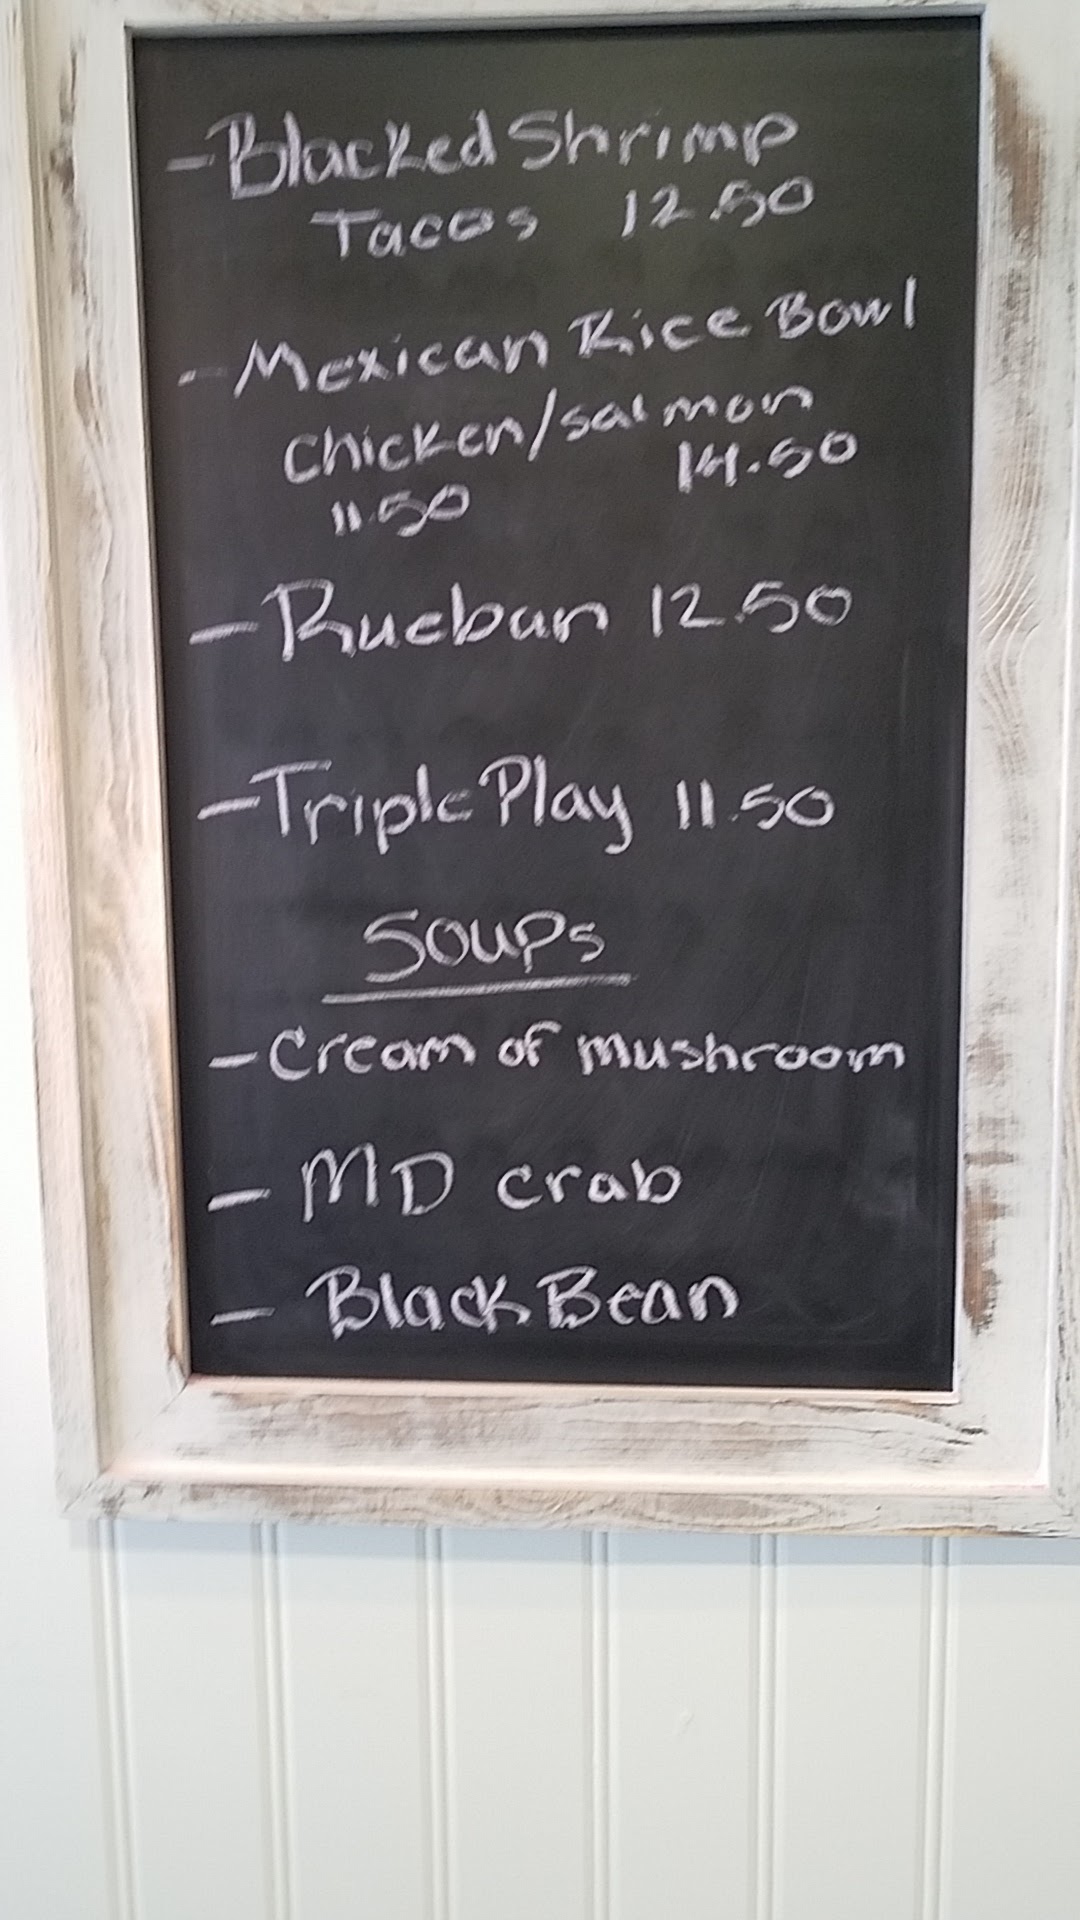 - Blacked Shrimp
Tacos 12.50
- Mexican Rice Bowl
Chicken/salmon
11.50 14.50
- Rueban 12.50
- Triple Play 11.50
Soups
- Cream of mushroom
- MD crab
- Black Bean